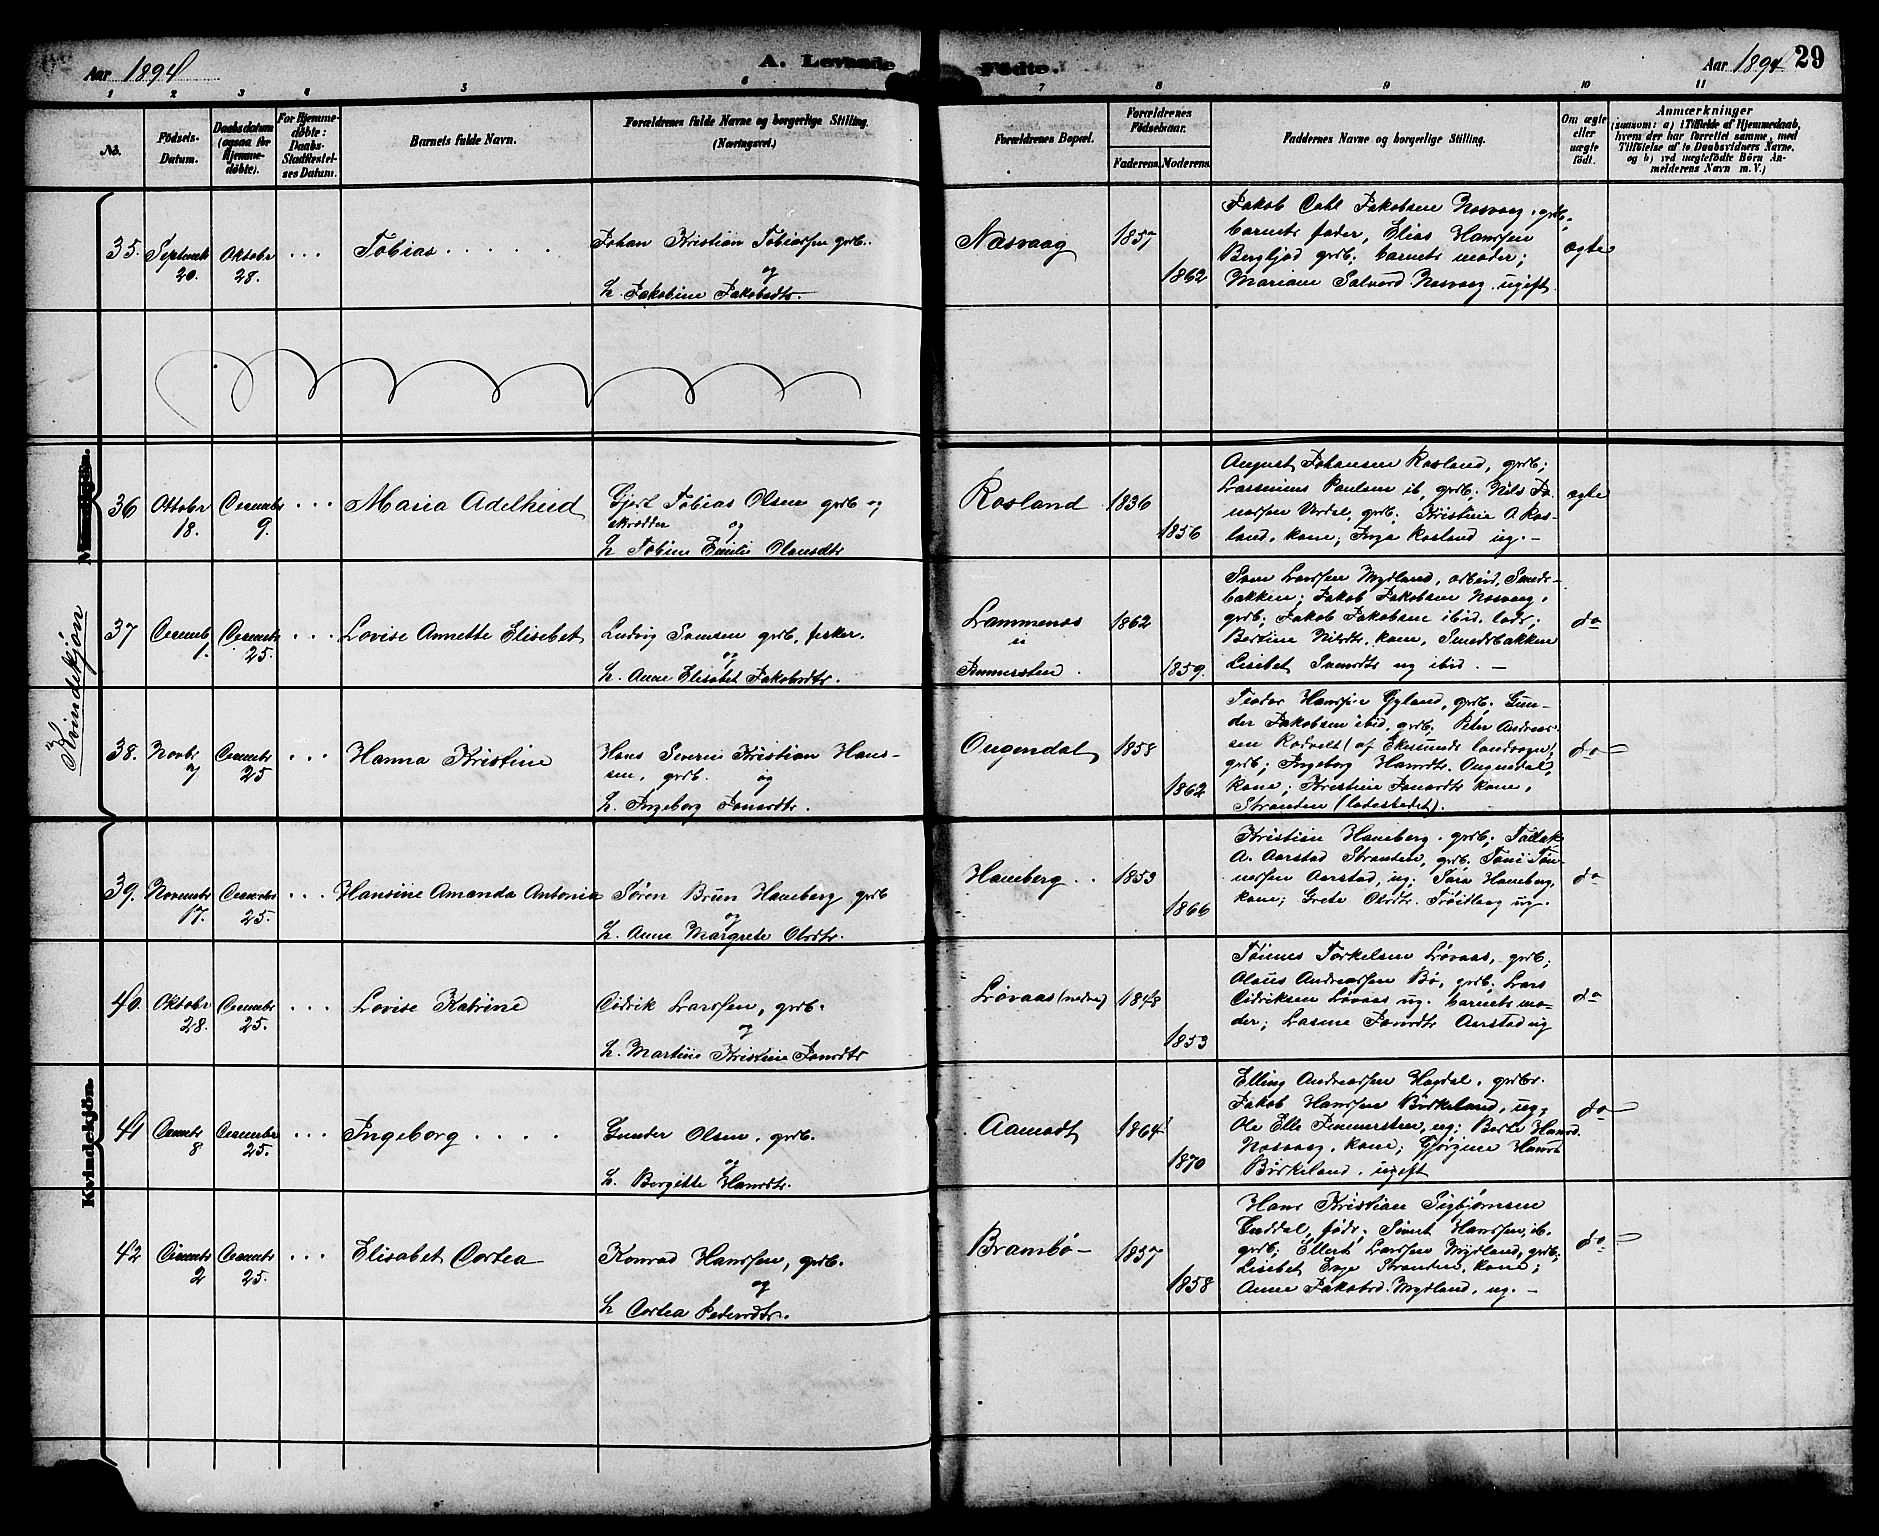 Aar 1894
A. Levende
Fødte.
Aar 1894
29
1 2 3 4 5 6 7 8 9 10 11
No.
Födsels-
Datum.
Daabsdatum
(ogsaa for
Hjemme-
döbte).
For Hjemme-
döbte:
Daabs-
Stadfestel-
ses Datum.
Barnets fulde Navn.
Forældrenes fulde Navne og borgerlige Stilling.
(Næringsvei.)
Forældrenes Bopæl.
Forældrenes
Fødselsaar.
Faderens. Moderens.
Faddernes Navne og borgerlige Stilling.
Om ægte
eller
uægte
födt.
Anmærkninger
(saasom: a) i Tilfælde af Hjemmedaab,
hvem der har forrettet samme, med
Tilføielse af to Daabsvidners Navne,
og b) ved uægtefödte Börn An-
melderens Navn m. V.)
35. Septemb 20. Oktober 28. . . . Tobias . . . . .
Johan Kristian Tobiassen grdb.
og
h. Jakobine Jakobsdtr.
Næsvaag 1857 1862
Jakob Carl Jakobsen Næsvaag, grdb.
barnets fader, Elias Hanssen
Bergljod grdb; barnets moder;
Mariane Salvesd. Næsvaag ugift.
ægte
Kvindekjön
36 Oktober 18. December 9. . . . Maria Adelheid
Gjert Tobias Olsen grdb og
skrædder og
h. Tobine Emilie Olausdtr
Rosland 1836 1856
August Johansen Rosland, grdb;
Lassenius Paulsen ib, grdb. Nils Jo-
nassen Verdal, grdb; Kristine A. Ros-
land, kone; Inga Rosland ug.-
ægte
37 Decemb 1. Decembr 25. . . . Lovise Annette Elisebet
Ludvig Svensen grdb. fisker.
og
h. Anne Elisabet Jakobsdtr.
Lammenes
i
1862 1859.
Svend Larssen Mydland, arbeid. Smeds-
bakken; Jakob Jakobsen Næsvaag,
grdb; Jakob Jakobsen ibid. lods;
Bertine Nilsdtr. kone, Smedsbakken
Lisebet Svensdtr ug ibid. -
do
38. Novbr 7 Decembr 25 . . . Hanna Kristine
Hans Severin Kristian Hans-
sen, grdb. og
h. Ingeborg Jonasdtr.
Ougendal 1858 1862
Teodor Hanssen Gyland, grdb, Gun-
der Jakobsen ibid, grdb, Peter Andreas-
sen Rodvelt (af Ekersunds landsogn),
grdb; Ingeborg Hansdtr. Ougendal,
kone; Kristine Jonasdtr kone,
Stranden (ladestedet).
do
39. November 17. December 25. . . . Hansine Amanda Antonia
Søren Brun Haneberg grdb
og
h. Anne Margrete Olsdtr.
Haneberg . . 1853 1866
Kristian Haneberg. grdb; Tallak
A. Aarstad Stranden, grdb. Tønes Tøn-
nessen Aarstad, ug; Sara Haneberg,
kone; Grete Olsdtr. ug.
do
40. Oktober 28. December 25. . . . Lovise Katrine
Didrik Larssen, grdb.
og
h. Martine Kristine Jonasdtr
Løvaas (nedre) 1848 1853
Tønnes Torkelsen Løvaas, grdb;
Olaus Andreassen Bø, grdb; Lars
Didriksen Løvaas ug. barnets mo-
der; Lasine Jonasdtr Aarstad ug
do
Kvindekjön.
41 Decembr 8 December 25. . . . Ingeborg . . . .
Gunder Olsen, grdb.
og
h. Bergitte Hansdtr.
Aamodt 1864 1870
Elling Andreassen Hogdal, grdbr.
Jakob Hanssen Birkeland, ug,
Ole Elle ug; Berte Hansd.
Næsvaag, kone; Gjørgine Hansd
Birkeland. ugift
do
42 December 2 December 25. . . . Elisabet Dortea
Konrad Hanssen, grdb.
og
h. Dortea Pedersdtr.
Brambø 1857 1858
Hans Kristian Sigbjørnsen
føder; Simert Hanssen, ib.
grdb; Ellert Larssen Mydland, grdb;
Lisebet Eye Stranden, kone;
Anne Jakobsd. Mydland, ug. -
do